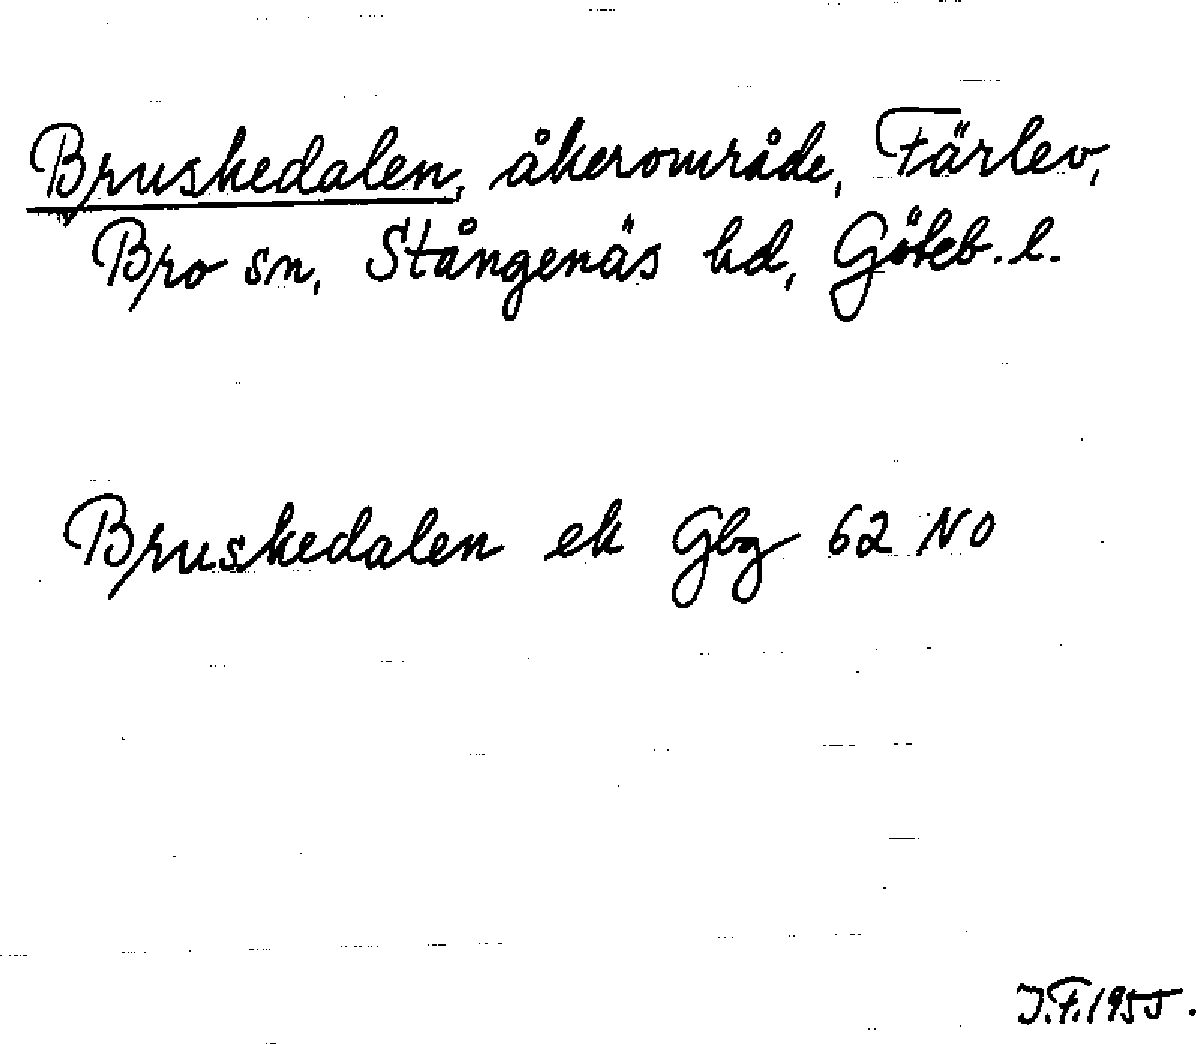 Bruskedalen, åkerområde, Färlev,
Bro sn, Stångenäs hd, Göteb. l.
Bruskedalen ek Gbg 62 NO
J.F. 1955.